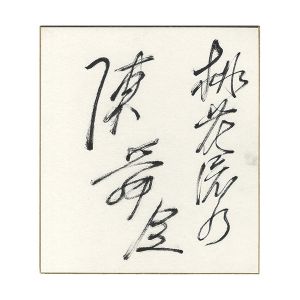 桃花流水
陳舜臣